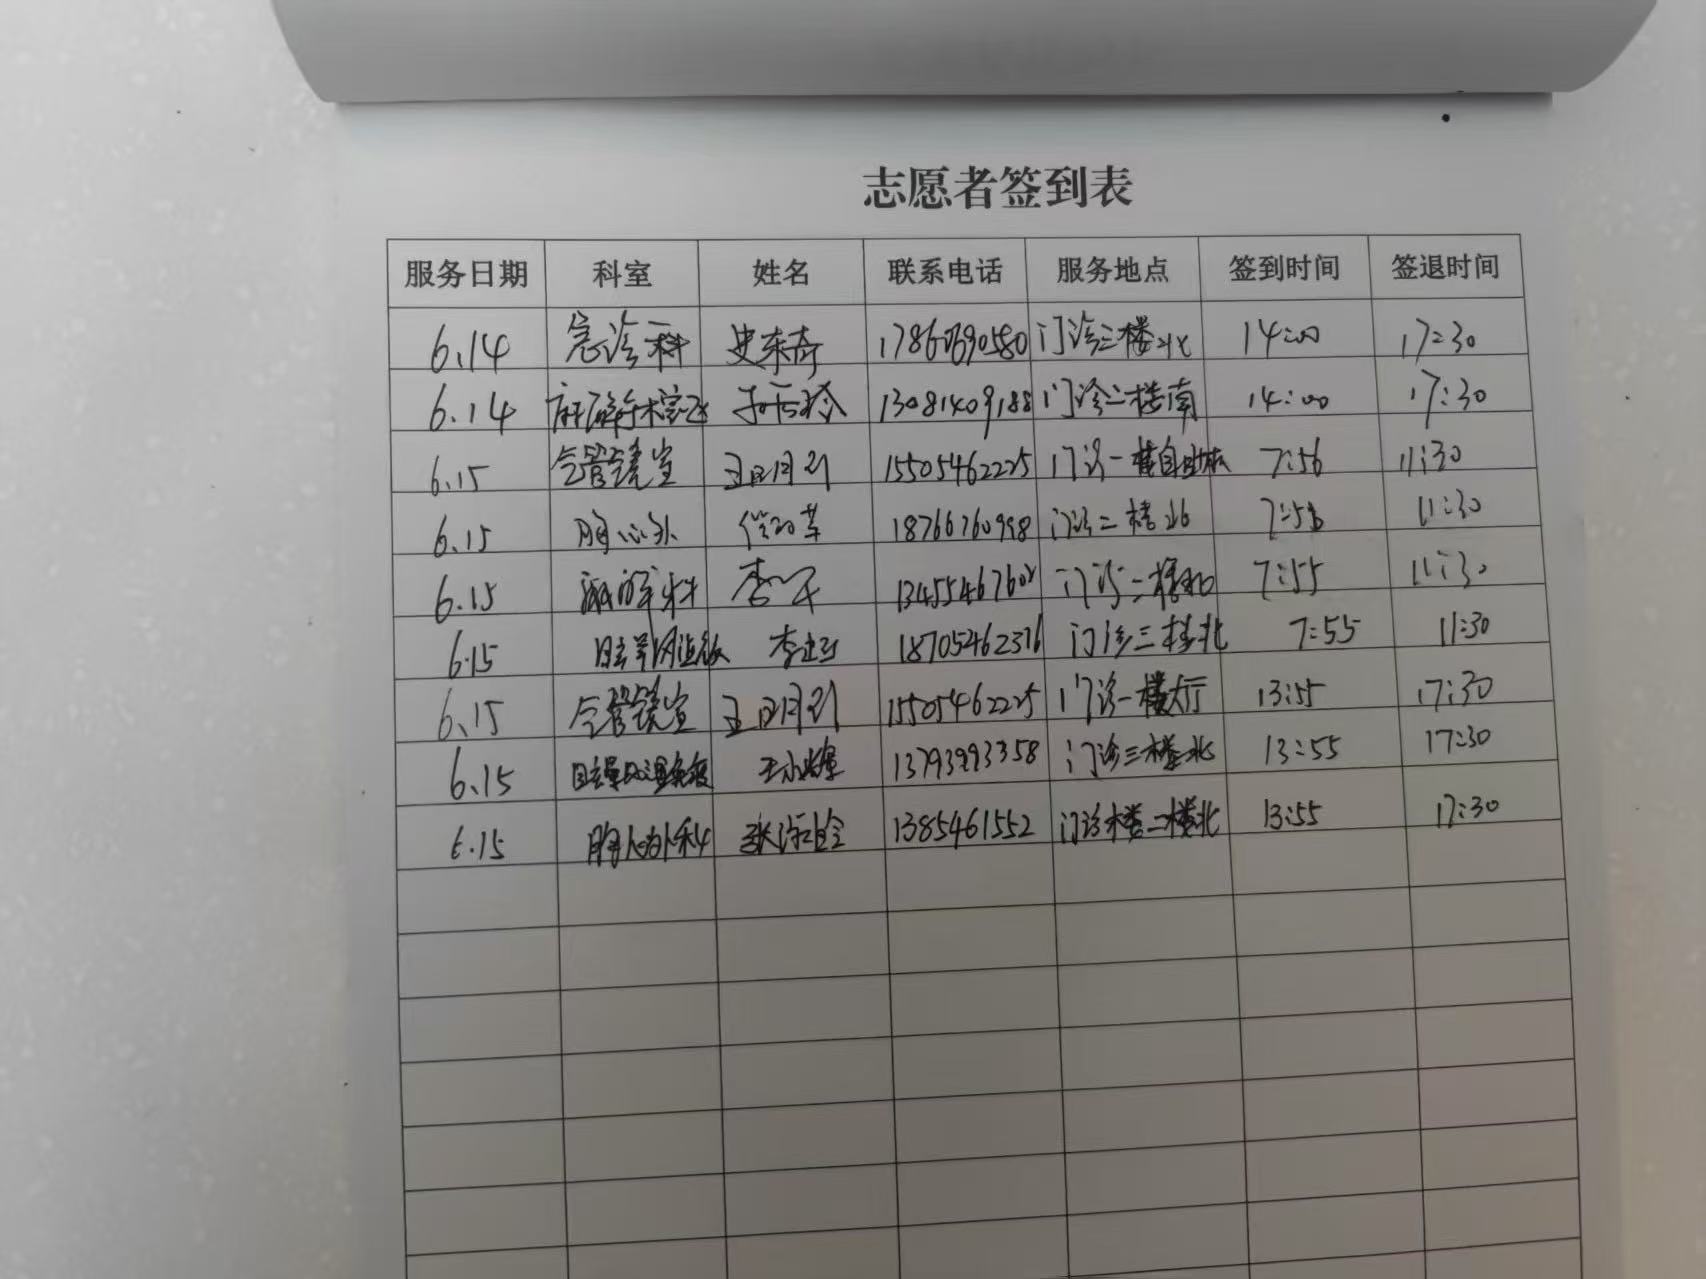 志愿者签到表
服务日期 科室 姓名 联系电话 服务地点 签到时间 签退时间
6.14 急诊科 史东奇 17867690580 门诊三楼北 14:00 17:30
6.14 13081409188 门诊二楼南 14:00 17:30
6.15 气管镜室 15505462225 门诊一楼自助机 7:56 11:30
6.15 胸心外 18766760998 门诊二楼北 11:30
6.15 李 门诊二楼北 7:55 11:30
6.15 李 18705462376 门诊三楼北 7:55 11:30
6.15 气管镜室 15505462225 门诊一楼大厅 13:55 17:30
6.15 王 13793993358 门诊三楼北 13:55 17:30
6.15 张 1385461552 门诊楼二楼北 13:55 17:30